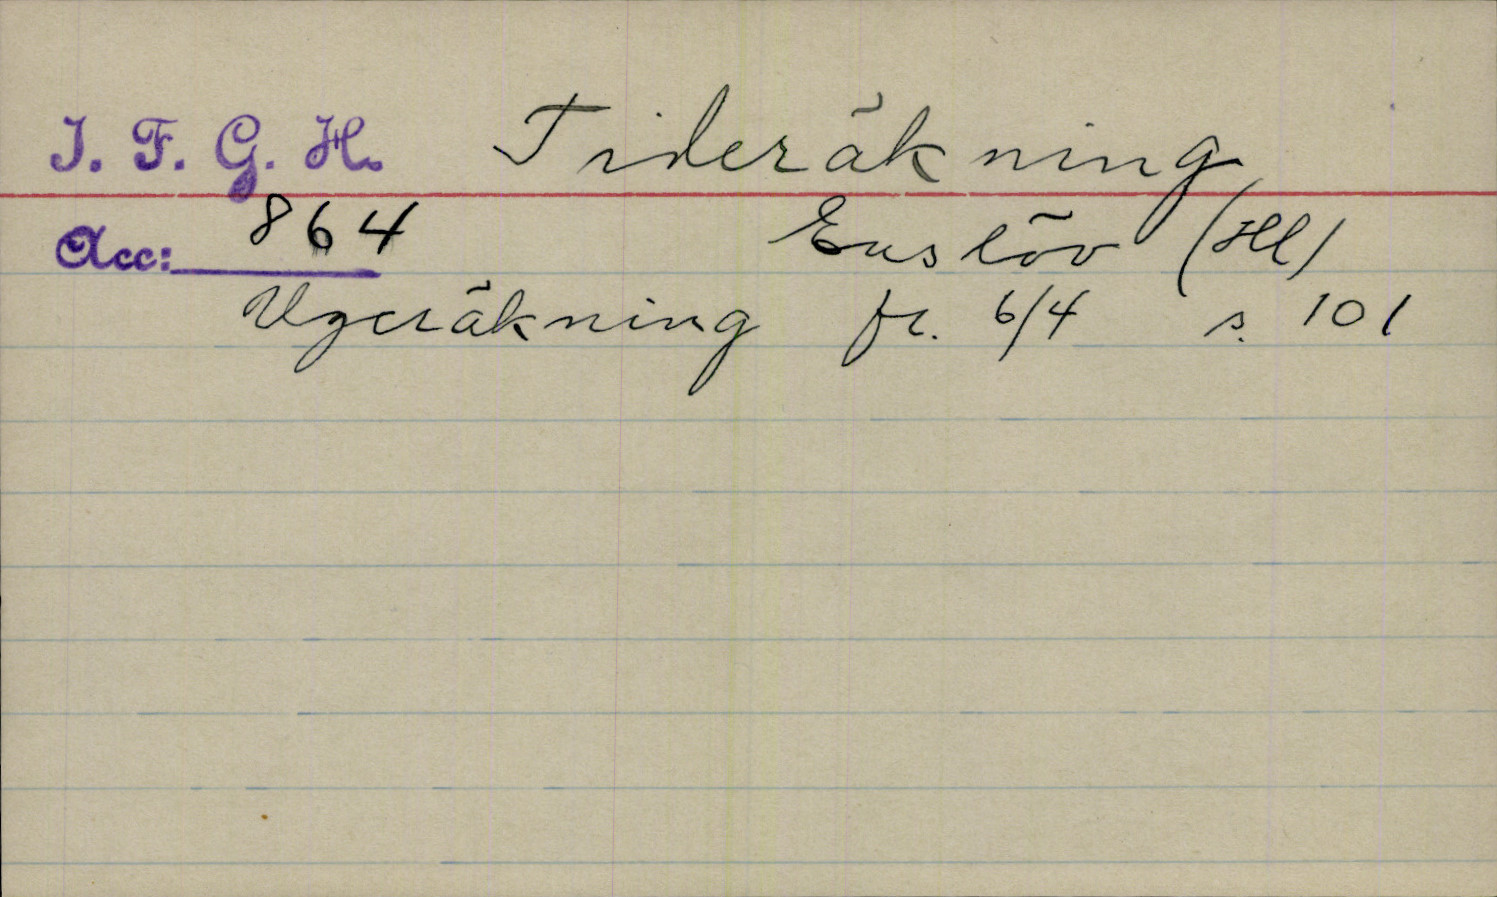 I. F. G. H. Tideräkning
Acc: 864 Enslöv (Hl)
Ugeräkning fr. 6/4 s. 101